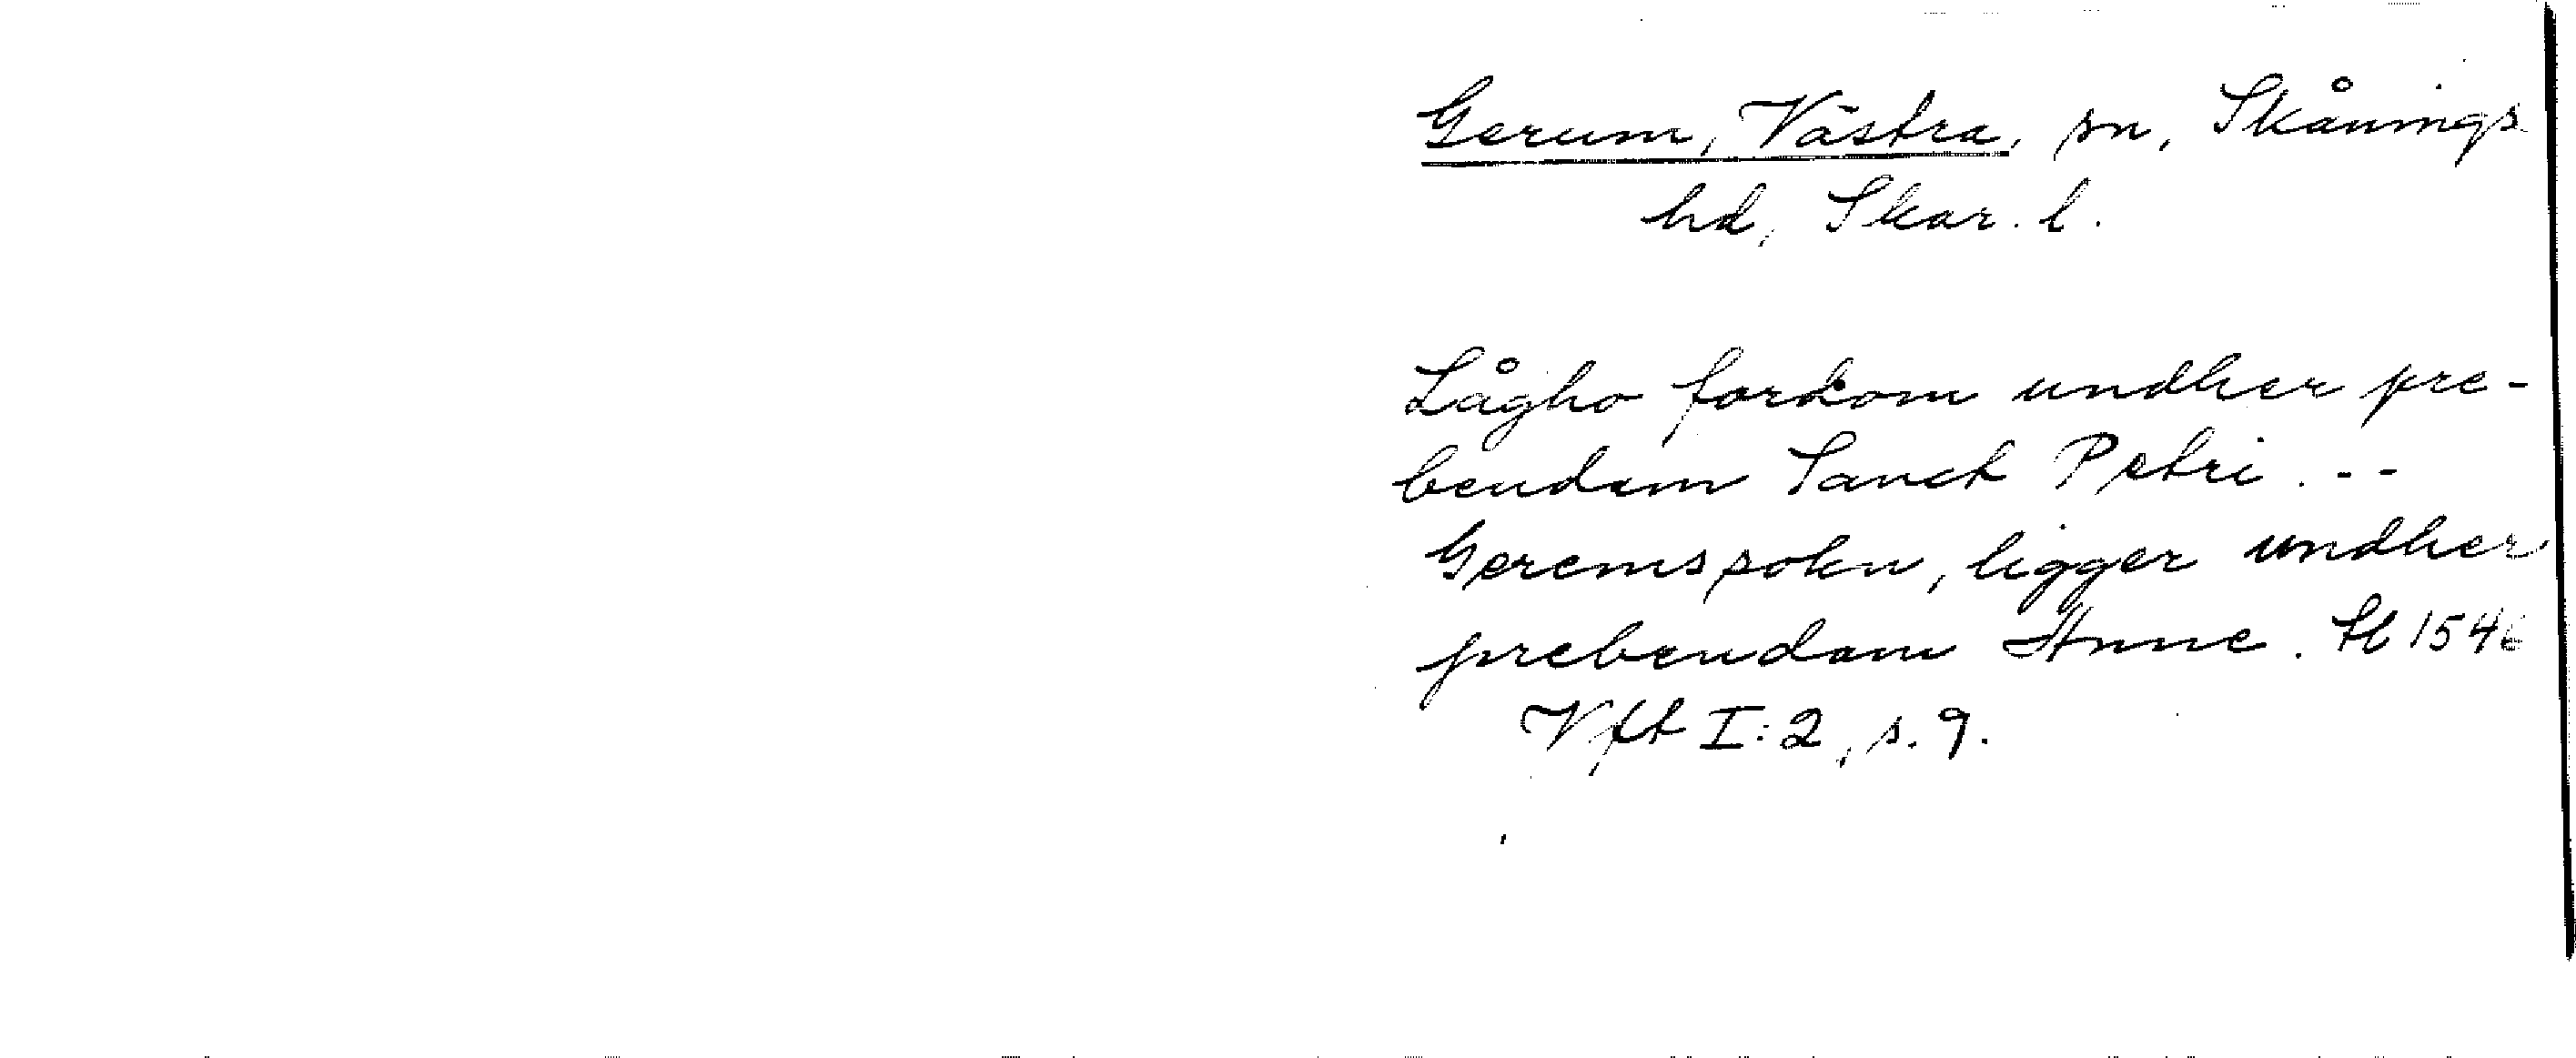 Gerum, Västra, sn, Skånings
hd, Skar. l.
Lågho fordom undher pre-
bendam Sanct Petri. --
Geremssokn, ligger undher
prebendam Anne. Jb 1546
Vft I:2, s. 9.